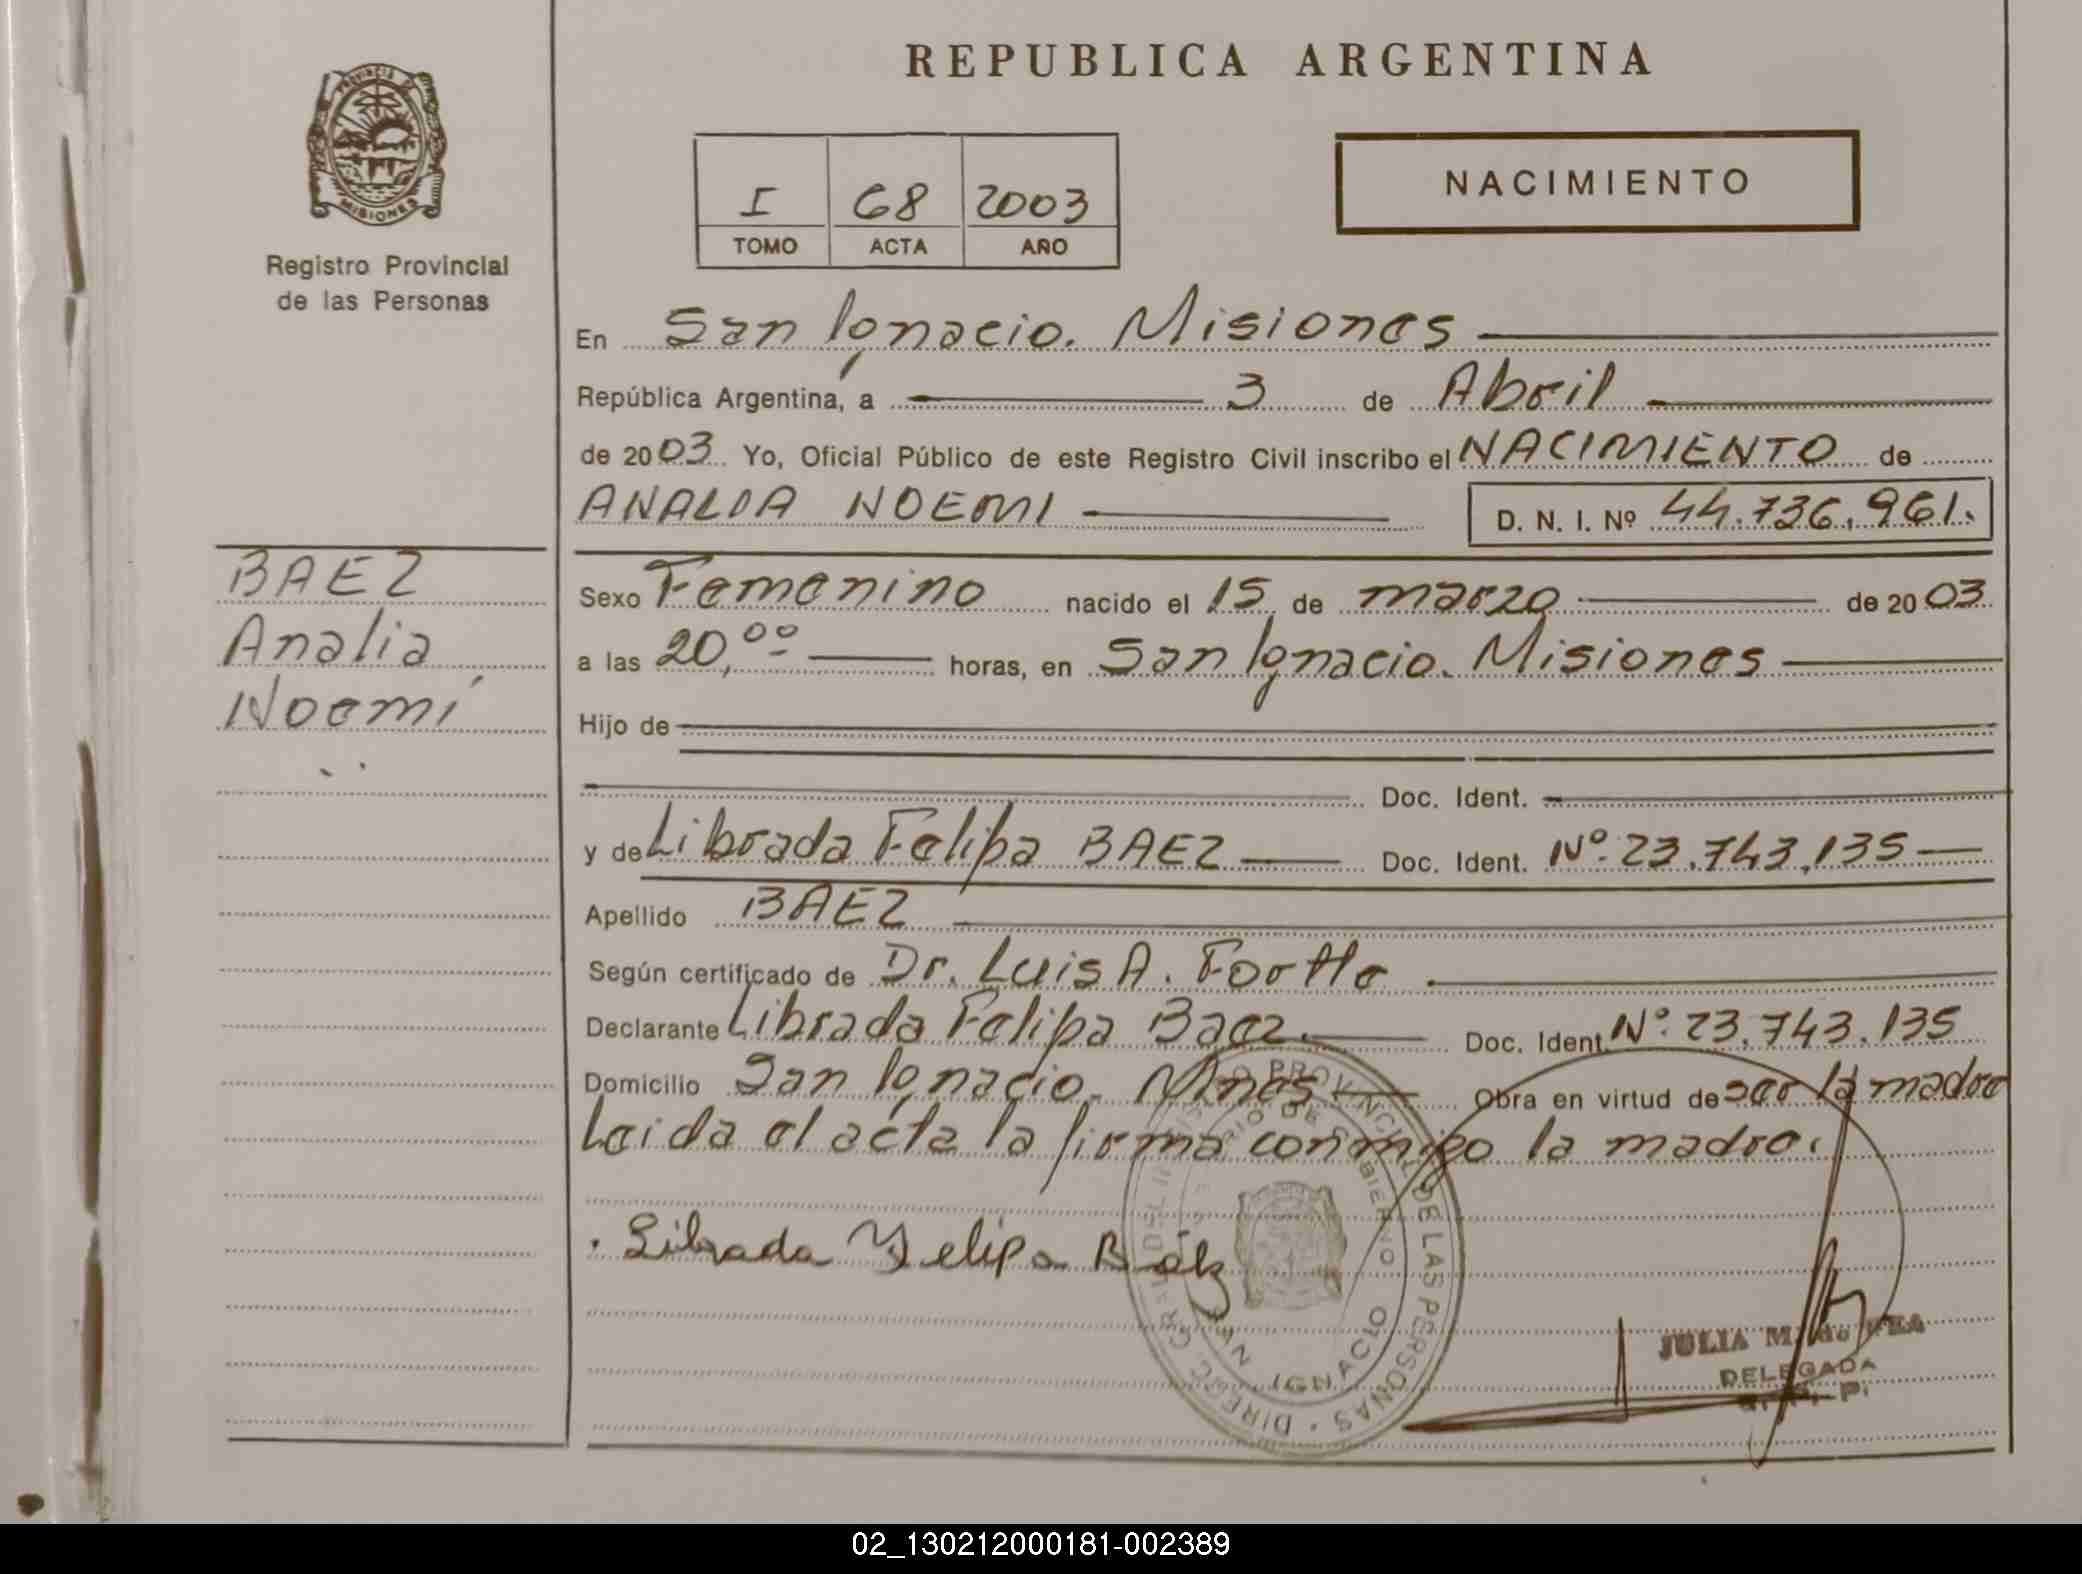 REPUBLICA ARGENTINA
PROVINCIA DE
MISIONES
Registro Provincial
de las Personas
I 68 2003
TOMO ACTA AÑO
NACIMIENTO
En San Ignacio. Misiones
República Argentina, a 3 de Abril
de 2003 Yo, Oficial Público de este Registro Civil inscribo el NACIMIENTO de
ANALIA NOEMI D. N. I. Nº 44.736.961.
BAEZ
Analia
Noemí
Sexo Femenino nacido el 15 de marzo de 2003
a las 20,00 horas, en San Ignacio. Misiones
Hijo de
Doc. Ident.
y de Librada Felipa BAEZ Doc. Ident. Nº. 23.743.135
Apellido BAEZ
Según certificado de Dr. Luis A.
Declarante Librada Felipa Baez. Doc. Ident. Nº. 23.743.135
Domicilio San Ignacio. Mnes Obra en virtud de ser la madre
Leida el acta la firma conmigo la madre.
Librada Felipa Báez
DE LAS PERSONAS
IGNACIO
JULIA M. de
DELEGADA
02_130212000181-002389